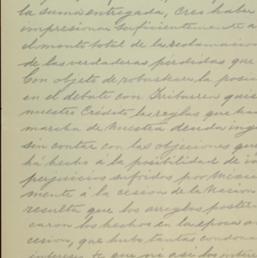 la suma entregada, creo haber
impresionar suficientemente a
el monto total de las reclamacio
de las verdaderas perdidas que
Con objeto de robustecer la posic
en el debate con Iriburren quise
nuestro Crédito las reglas que han
marcha de Nuestra deuda ing
sin contar con las objeciones que
há hecho á la posibilidad de
perjuicios sufridos por
mente á la cesion de la Nacion
resulta que los arreglos poster
caron los hechos en la época
cesion, que hubo tantas condon
intereses, que